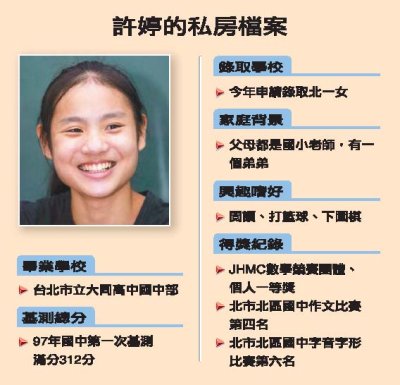 許婷的私房檔案
畢業學校
台北市立大同高中國中部
基測總分
97年國中第一次基測
滿分312分
錄取學校
今年申請錄取北一女
家庭背景
父母都是國小老師，有一
個弟弟
興趣嗜好
閱讀、打籃球、下圍棋
得獎紀錄
JHMC數學競賽團體、
個人一等獎
北市北區國中作文比賽
第四名
北市北區國中字音字形
比賽第六名